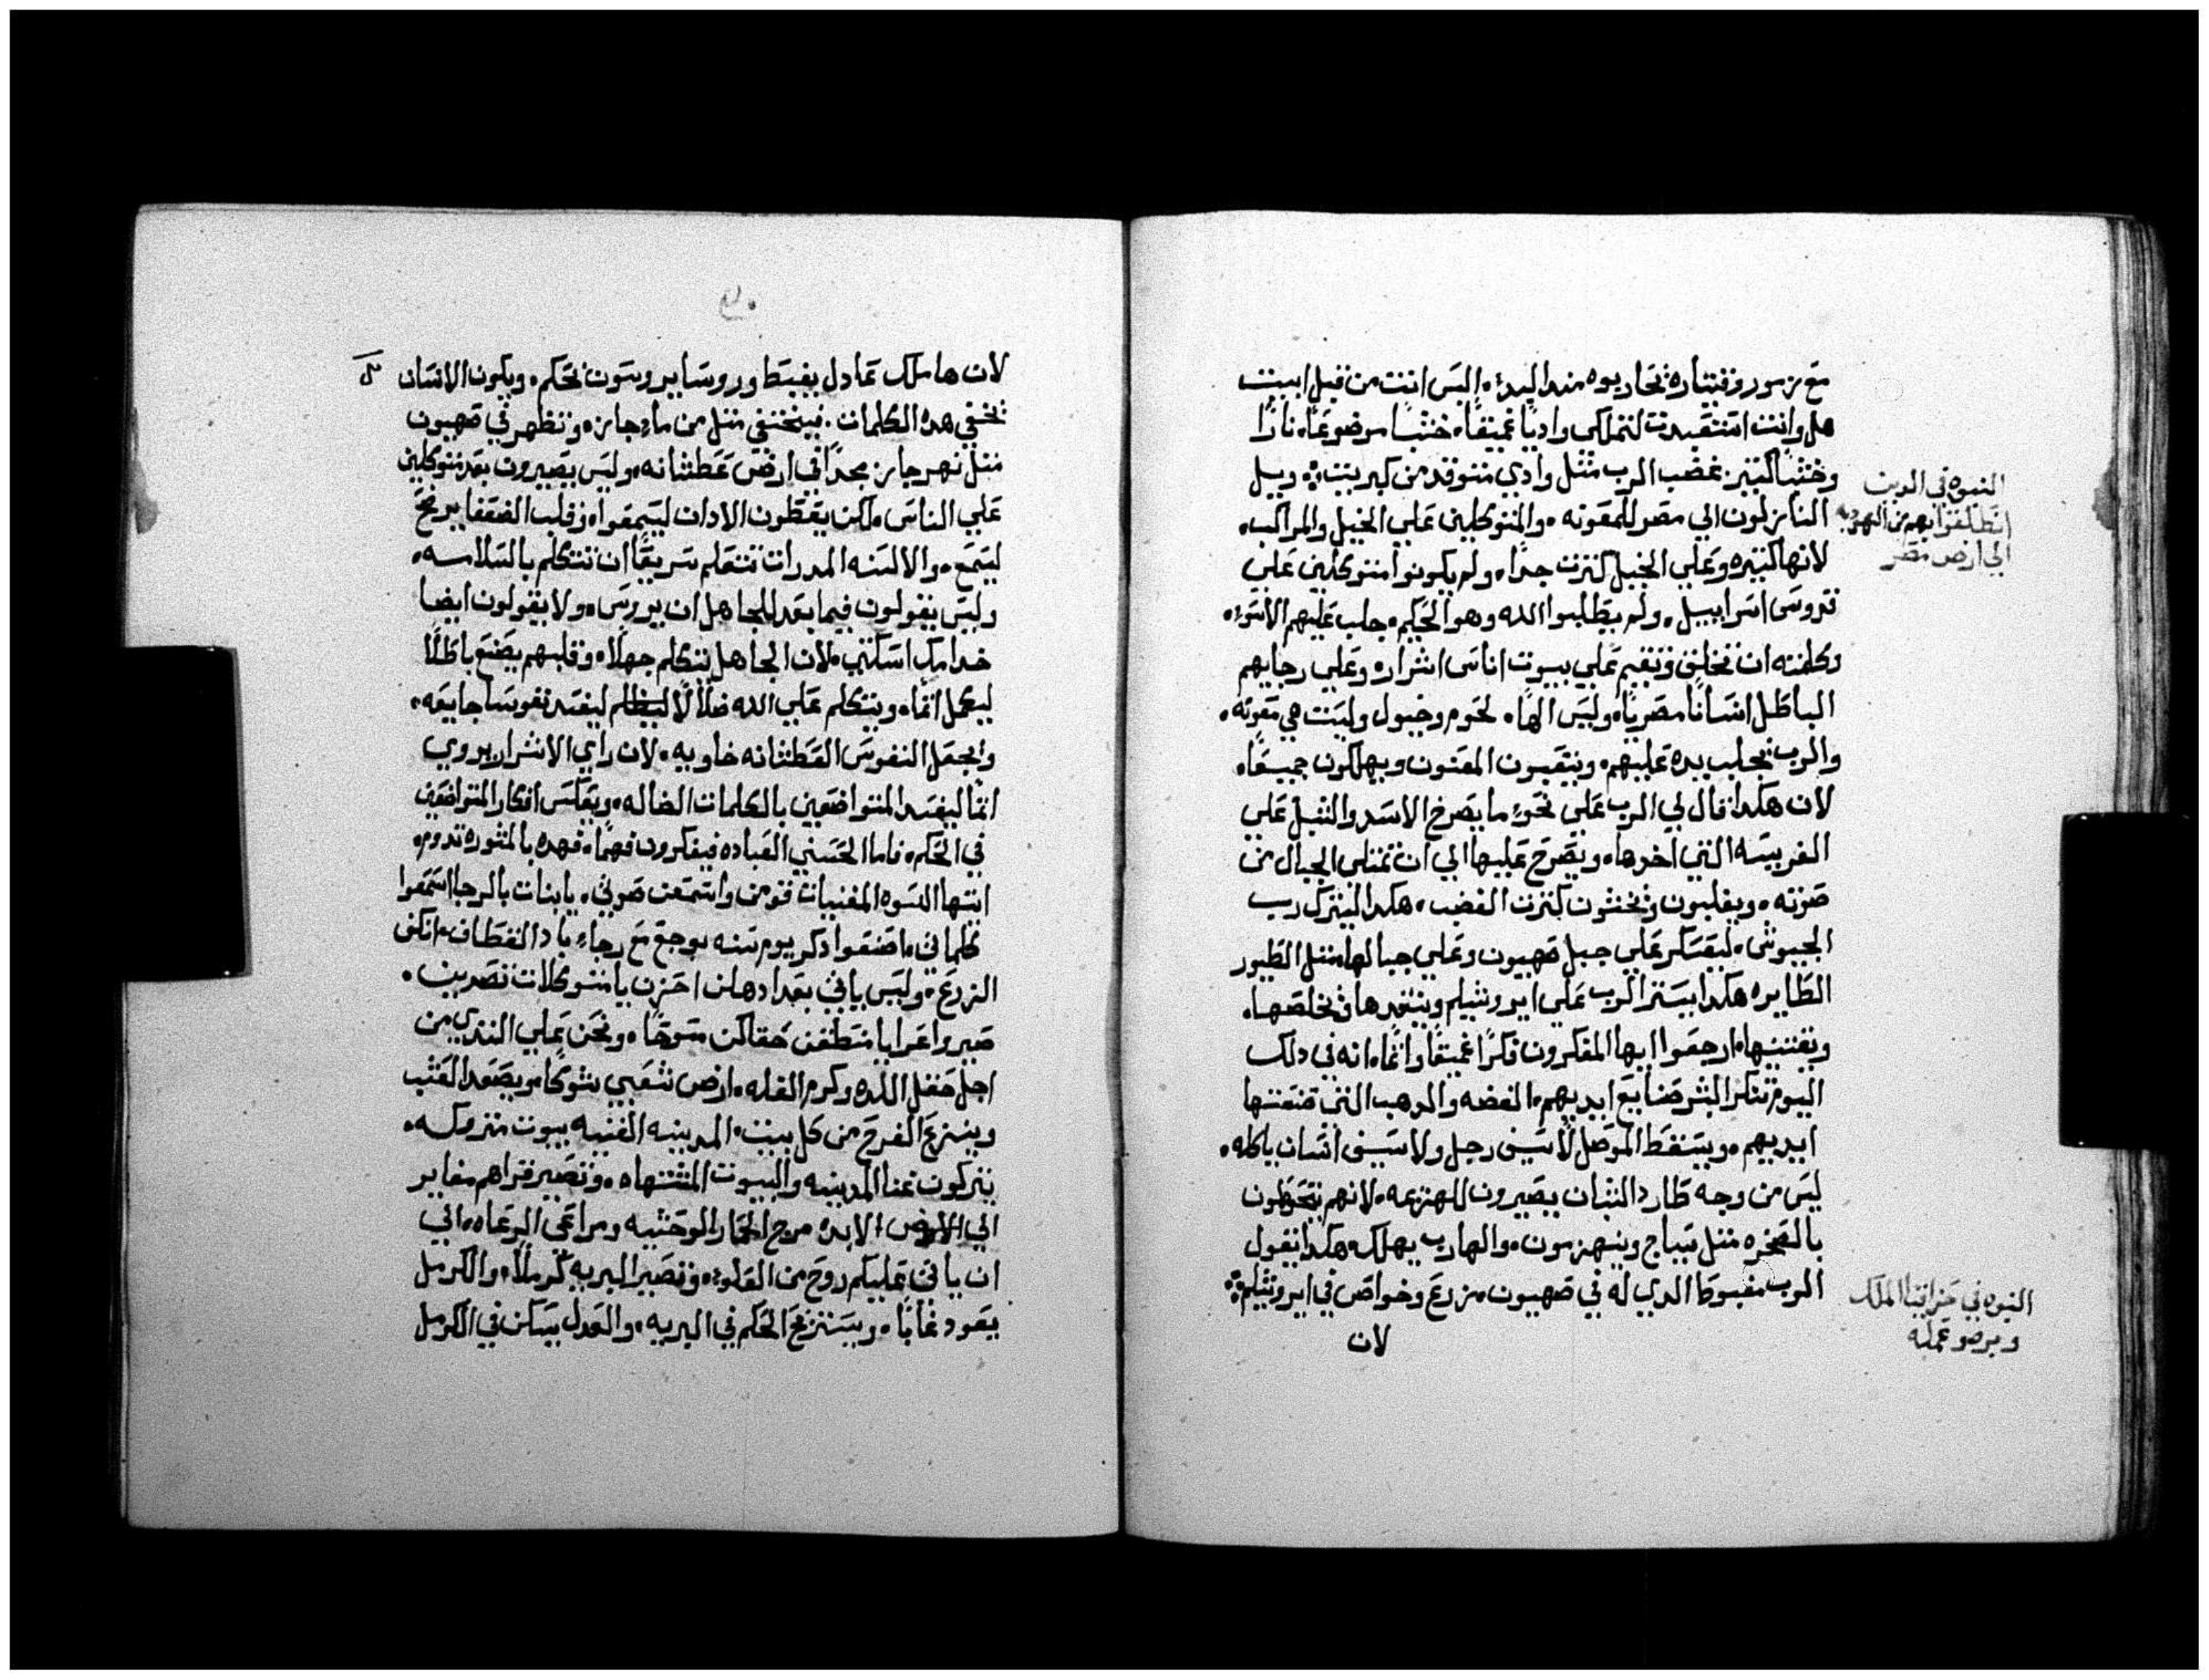 مع زمور وقيتاره يحاربوه منذ البدء. اليس انت من قبل ابيت
هل وانت استعيدت لتملك واديًا عميقًا. خشبًا موضوعًا. نارًا
وخشبًا كتير. غضب الرب مثل وادي متوقد من كبريت؛ ويل
النازلون الي مصر للمعونه. والمتوكلين علي الخيل والمراكب.
لانها كتيره وعلي الخيل كترت جدًا. ولم يكونوا متوكلين علي
قدوس اسراييل. ولم يطلبوا الله وهو الحكيم. جلب عليهم الاسوء.
وكلمته ان تخلق وتقيم علي بيوت اناس اشرار. وعلي رجايهم
الباطل انسانًا مصريًا. وليس الهًا. لحوم وخيول وليست هي معونه.
والرب يجلب يده عليهم. ويتعبون المعنون ويهلكون جميعًا.
لان هكدا قال لي الرب علي نحو ما يصرخ الاسد والشبل علي
الفريسه التي اخدها. ويصرخ عليها الي ان تمتلي الجبال من
صوته. ويغلبون ويخشون كترت الغضب. هكدا لينزل رب
الجيوش. ليعسكر علي جبل صهيون وعلي جبالها متل الطيور
الطايره هكدا يستر الرب علي ايروشليم وينقدها ويخلصها.
ويقتنيها. ارجعوا ايها المفكرون فكرًا عميقًا واثمًا. انه في دلك
اليوم تنكر البشر صنايع ايديهم. الفضه والدهب التي صنعتها
ايديهم. ويسقط الموصل لا سيف رجل ولا سيف انسان ياكله.
ليس من وجه طارد الشبان يصيرون للهزيمه. لانهم يتحوطون
بالصخره متل سياج وينهزمون. والهارب يهلك. هكدا يقول
الرب مغبوطًا الدي له في صهيون. زرع وخواص في ايروشليم؛
لان
النبوه في الدين
انطلقوا بهم من اليهوديه
الي ارض مصر
النبوه في حزاقيا الملك
لان ها ملك عادل يغبط وروسا يروسون بحكم. ويكون الانسان
يخفي هده الكلمات. فيختفي متل من ماء جايز. وتظهر في صهيون
متل نهر جايز مجدًا في ارض عطشانه. وليس يصيرون بعد متوكلين
علي الناس. لكن يعطون الادان ليسمعوا. وقلب الضعفا يريح
ليسمع. والالسنه المدرات تتعلم سريعًا ان تتكلم بالسلامه.
وليس يقولون فيما بعد للجاهل ان يروس. ولا يقولون ايضا
خدامك اسكتي. لان الجاهل تتكلم جهلًا. وقلبهم يصنع باطلًا
ليكمل اثمًا. ويتكلم علي الله ضلالًا ليظلم ليفسد نفوسا جايعه.
ويجعل النفوس العطشانه خاويه. لان راي الاشرار يروي
اثمًا ليفسد المتواضعين بالكلمات الضاله. ويعكس افكار المتواضعين
في الحكم. فاما الحسني العباده فيفكرون فهمًا. فهده بالمشوره تدوم.
ايتها النسوه المغنيات قومن واستمعن صوتي. يا بنات بالرجا استمعوا
كلماتي. اصنعوا دكر يوم سنه بوجع مع رجاء باد القطاف. انكفي
الزرع. وليس ياتي بعد ادهلن احزن يا متوكلات تصدين.
صيروا عرايا منطقن حقاكن مسوحًا. ونحن علي الثدي من
اجل حقل اللده وكرم الغله. ارض شعبي شوكًا. ويصعد العشب
وينزع الفرح من كل بيت. المدينه الغنيه بيوت متروكه.
يتركون غنا المدينه والبيوت المشتهاه. وتصير قراهم مغاير
الي الارض الابده مرح الحمار الوحشيه ومراعي الرعاه. الي
ان ياتي عليكم روح من العلوء. وتصير البريه كرملًا. والكرمل
يعود غابًا. ويستنزع الحكم في البريه. والعدل يسكن في الكرمل